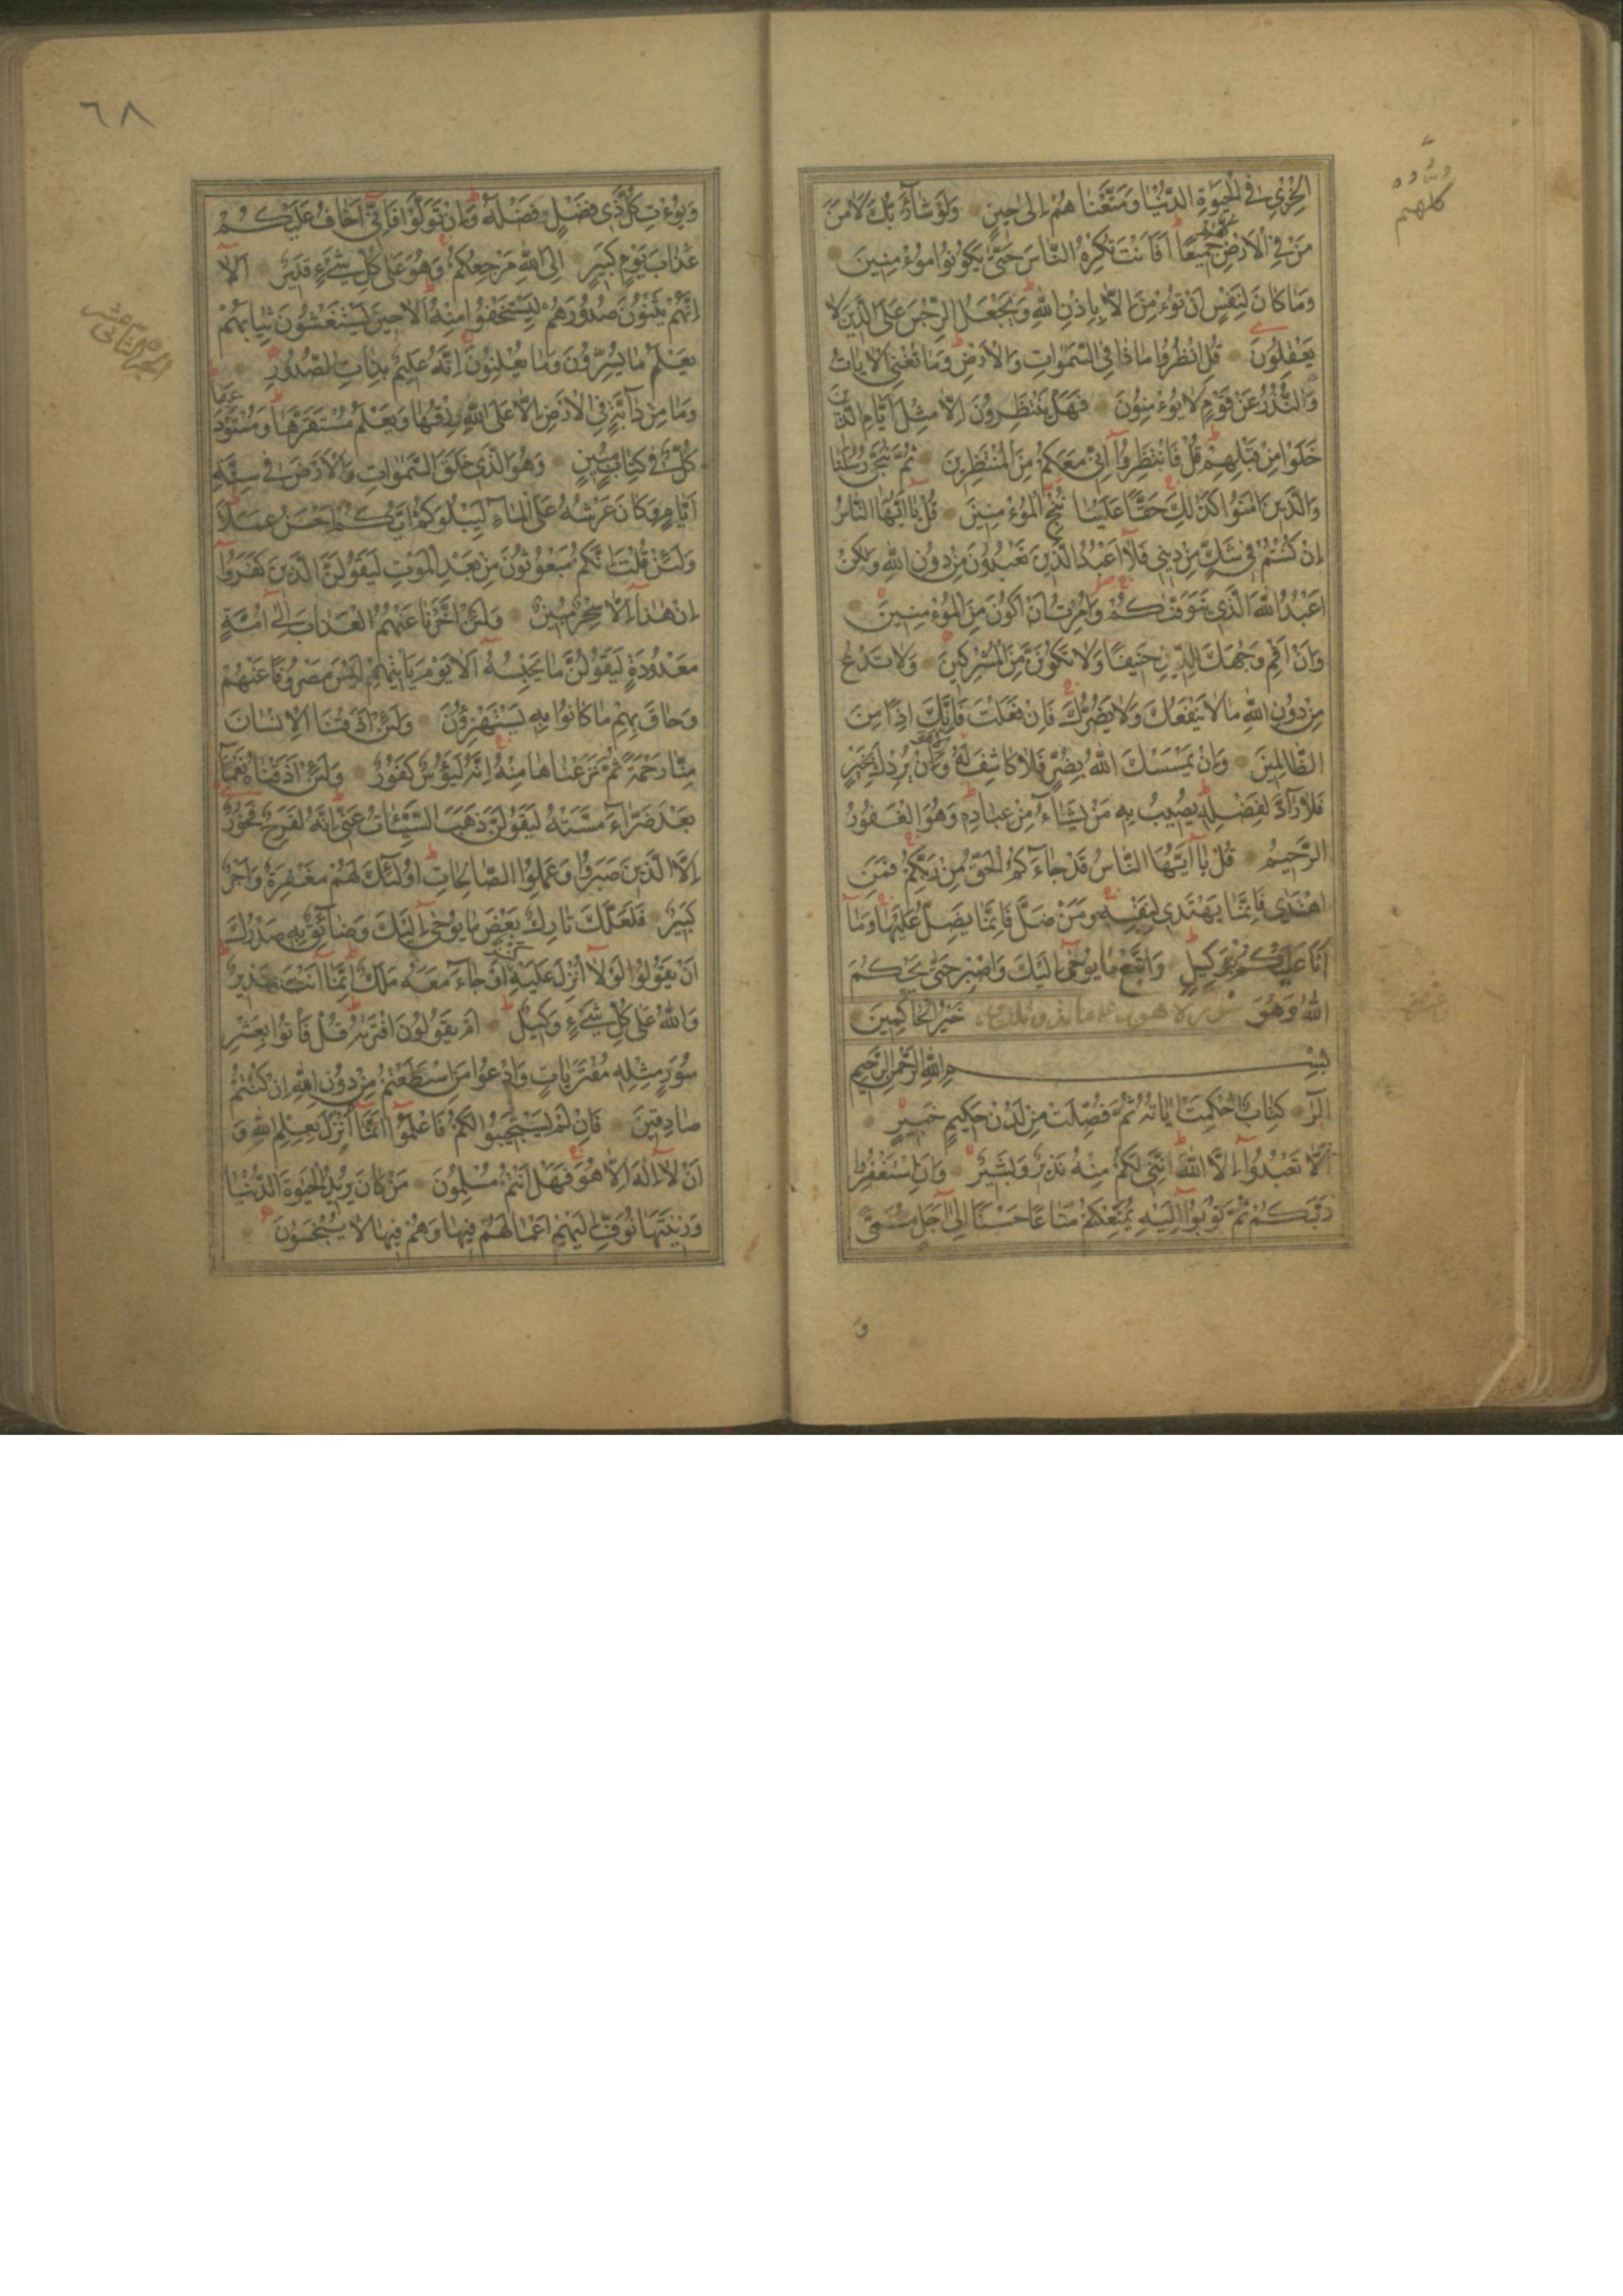 الْخِزْيِ فِي الْحَيٰوةِ الدُّنْيَا وَمَتَّعْنَا هُمْ اِلٰى حٖينٍ وَلَوْ شَآءَ رَبُّكَ لَاٰمَنَ
مَنْ فِي الْاَرْضِ جَمٖيعًا اَفَاَنْتَ تُكْرِهُ النَّاسَ حَتّٰى يَكُونُوا مُوءْمِنٖينَ
كلهم
وَمَا كَانَ لِنَفْسٍ اَنْ تُوءْمِنَ اِلَّا بِاِذْنِ اللّٰهِ وَيَجْعَلُ الرِّجْسَ عَلَى الَّذٖينَ لَا
يَعْقِلُونَ قُلِ انْظُرُوا مَا ذَا فِي السَّمٰوَاتِ وَالْاَرْضِ وَمَا تُغْنِي الْاٰيَاتُ
وَالنُّذُرُ عَنْ قَوْمٍ لَا يُوءْمِنُونَ فَهَلْ يَنْتَظِرُونَ اِلَّا مِثْلَ اَيَّامِ الَّذٖينَ
خَلَوْا مِنْ قَبْلِهِمْ قُلْ فَانْتَظِرُوا اِنّٖي مَعَكُمْ مِنَ الْمُنْتَظِرٖينَ ثُمَّ نُنَجّٖي رُسُلَنَا
وَالَّذٖينَ اٰمَنُوا كَذٰلِكَ حَقًّا عَلَيْنَا نُنْجِ الْمُوءْمِنٖينَ قُلْ يَا اَيُّهَا النَّاسُ
اِنْ كُنْتُمْ فٖي شَكٍّ مِنْ دٖينٖي فَلَا اَعْبُدُ الَّذٖينَ تَعْبُدُونَ مِنْ دُونِ اللّٰهِ وَلٰكِنْ
اَعْبُدُ اللّٰهَ الَّذٖي يَتَوَفّٰيكُمْ وَاُمِرْتُ اَنْ اَكُونَ مِنَ الْمُوءْمِنٖينَ
وَاَنْ اَقِمْ وَجْهَكَ لِلدّٖينِ حَنٖيفًا وَلَا تَكُونَنَّ مِنَ الْمُشْرِكٖينَ وَلَا تَدْعُ
مِنْ دُونِ اللّٰهِ مَا لَا يَنْفَعُكَ وَلَا يَضُرُّكَ فَاِنْ فَعَلْتَ فَاِنَّكَ اِذًا مِنَ
الظَّالِمٖينَ وَاِنْ يَمْسَسْكَ اللّٰهُ بِضُرٍّ فَلَا كَاشِفَ لَهُ وَاِنْ يُرِدْكَ بِخَيْرٍ
فَلَا رَآدَّ لِفَضْلِهٖ يُصٖيبُ بِهٖ مَنْ يَشَآءُ مِنْ عِبَادِهٖ وَهُوَ الْغَفُورُ
الرَّحٖيمُ قُلْ يَا اَيُّهَا النَّاسُ قَدْ جَاءَكُمُ الْحَقُّ مِنْ رَبِّكُمْ فَمَنِ
اهْتَدٰى فَاِنَّمَا يَهْتَدٖي لِنَفْسِهٖ وَمَنْ ضَلَّ فَاِنَّمَا يَضِلُّ عَلَيْهَا وَمَا
اَنَا عَلَيْكُمْ بِوَكٖيلٍ وَاتَّبِعْ مَا يُوحٰى اِلَيْكَ وَاصْبِرْ حَتّٰى يَحْكُمَ
اللّٰهُ وَهُوَ خَيْرُ الْحَاكِمٖينَ
سورة هود
بِسْمِ اللّٰهِ الرَّحْمٰنِ الرَّحٖيمِ
الٓرٰ كِتَابٌ اُحْكِمَتْ اٰيَاتُهُ ثُمَّ فُصِّلَتْ مِنْ لَدُنْ حَكٖيمٍ خَبٖيرٍ
اَلَّا تَعْبُدُوا اِلَّا اللّٰهَ اِنَّنٖي لَكُمْ مِنْهُ نَذٖيرٌ وَبَشٖيرٌ وَاَنِ اسْتَغْفِرُوا
رَبَّكُمْ ثُمَّ تُوبُوا اِلَيْهِ يُمَتِّعْكُمْ مَتَاعًا حَسَنًا اِلٰى اَجَلٍ مُسَمًّى
وَ
٦٨
وَيُوءْتِ كُلَّ ذٖي فَضْلٍ فَضْلَهُ وَاِنْ تَوَلَّوْا فَاِنّٖي اَخَافُ عَلَيْكُمْ
عَذَابَ يَوْمٍ كَبٖيرٍ اِلَى اللّٰهِ مَرْجِعُكُمْ وَهُوَ عَلٰى كُلِّ شَيْءٍ قَدٖيرٌ اَلَا
اِنَّهُمْ يَثْنُونَ صُدُورَهُمْ لِيَسْتَخْفُوا مِنْهُ اَلَا حٖينَ يَسْتَغْشُونَ ثِيَابَهُمْ
الجزء الثانى عشر
يَعْلَمُ مَا يُسِرُّونَ وَمَا يُعْلِنُونَ اِنَّهُ عَلٖيمٌ بِذَاتِ الصُّدُورِ
وَمَا مِنْ دَآبَّةٍ فِي الْاَرْضِ اِلَّا عَلَى اللّٰهِ رِزْقُهَا وَيَعْلَمُ مُسْتَقَرَّهَا وَمُسْتَوْدَعَهَا
كُلٌّ فٖي كِتَابٍ مُبٖينٍ وَهُوَ الَّذٖي خَلَقَ السَّمٰوَاتِ وَالْاَرْضَ فٖي سِتَّةِ
اَيَّامٍ وَكَانَ عَرْشُهُ عَلَى الْمَاءِ لِيَبْلُوَكُمْ اَيُّكُمْ اَحْسَنُ عَمَلًا
وَلَئِنْ قُلْتَ اِنَّكُمْ مَبْعُوثُونَ مِنْ بَعْدِ الْمَوْتِ لَيَقُولَنَّ الَّذٖينَ كَفَرُوا
اِنْ هٰذَا اِلَّا سِحْرٌ مُبٖينٌ وَلَئِنْ اَخَّرْنَا عَنْهُمُ الْعَذَابَ اِلٰى اُمَّةٍ
مَعْدُودَةٍ لَيَقُولُنَّ مَا يَحْبِسُهُ اَلَا يَوْمَ يَاْتٖيهِمْ لَيْسَ مَصْرُوفًا عَنْهُمْ
وَحَاقَ بِهِمْ مَا كَانُوا بِهٖ يَسْتَهْزِؤُنَ وَلَئِنْ اَذَقْنَا الْاِنْسَانَ
مِنَّا رَحْمَةً ثُمَّ نَزَعْنَاهَا مِنْهُ اِنَّهُ لَيَؤُسٌ كَفُورٌ وَلَئِنْ اَذَقْنَاهُ نَعْمَآءَ
بَعْدَ ضَرَّاءَ مَسَّتْهُ لَيَقُولَنَّ ذَهَبَ السَّيِّئَاتُ عَنّٖي اِنَّهُ لَفَرِحٌ فَخُورٌ
اِلَّا الَّذٖينَ صَبَرُوا وَعَمِلُوا الصَّالِحَاتِ اُولٰئِكَ لَهُمْ مَغْفِرَةٌ وَاَجْرٌ
كَبٖيرٌ فَلَعَلَّكَ تَارِكٌ بَعْضَ مَا يُوحٰى اِلَيْكَ وَضَآئِقٌ بِهٖ صَدْرُكَ
اَنْ يَقُولُوا لَوْلَا اُنْزِلَ عَلَيْهِ كَنْزٌ اَوْ جَاءَ مَعَهُ مَلَكٌ اِنَّمَا اَنْتَ نَذٖيرٌ
وَاللّٰهُ عَلٰى كُلِّ شَيْءٍ وَكٖيلٌ اَمْ يَقُولُونَ افْتَرٰيهُ قُلْ فَاْتُوا بِعَشْرِ
سُوَرٍ مِثْلِهٖ مُفْتَرَيَاتٍ وَادْعُوا مَنِ اسْتَطَعْتُمْ مِنْ دُونِ اللّٰهِ اِنْ كُنْتُمْ
صَادِقٖينَ فَاِنْ لَمْ يَسْتَجٖيبُوا لَكُمْ فَاعْلَمُوا اَنَّمَا اُنْزِلَ بِعِلْمِ اللّٰهِ وَ
اَنْ لَا اِلٰهَ اِلَّا هُوَ فَهَلْ اَنْتُمْ مُسْلِمُونَ مَنْ كَانَ يُرٖيدُ الْحَيٰوةَ الدُّنْيَا
وَزٖينَتَهَا نُوَفِّ اِلَيْهِمْ اَعْمَالَهُمْ فٖيهَا وَهُمْ فٖيهَا لَا يُبْخَسُونَ